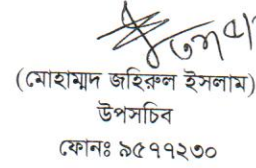 (মোহাম্মদ জহিরুল ইসলাম)
উপসচিব
ফোনঃ ৯৫৭৭২৩০